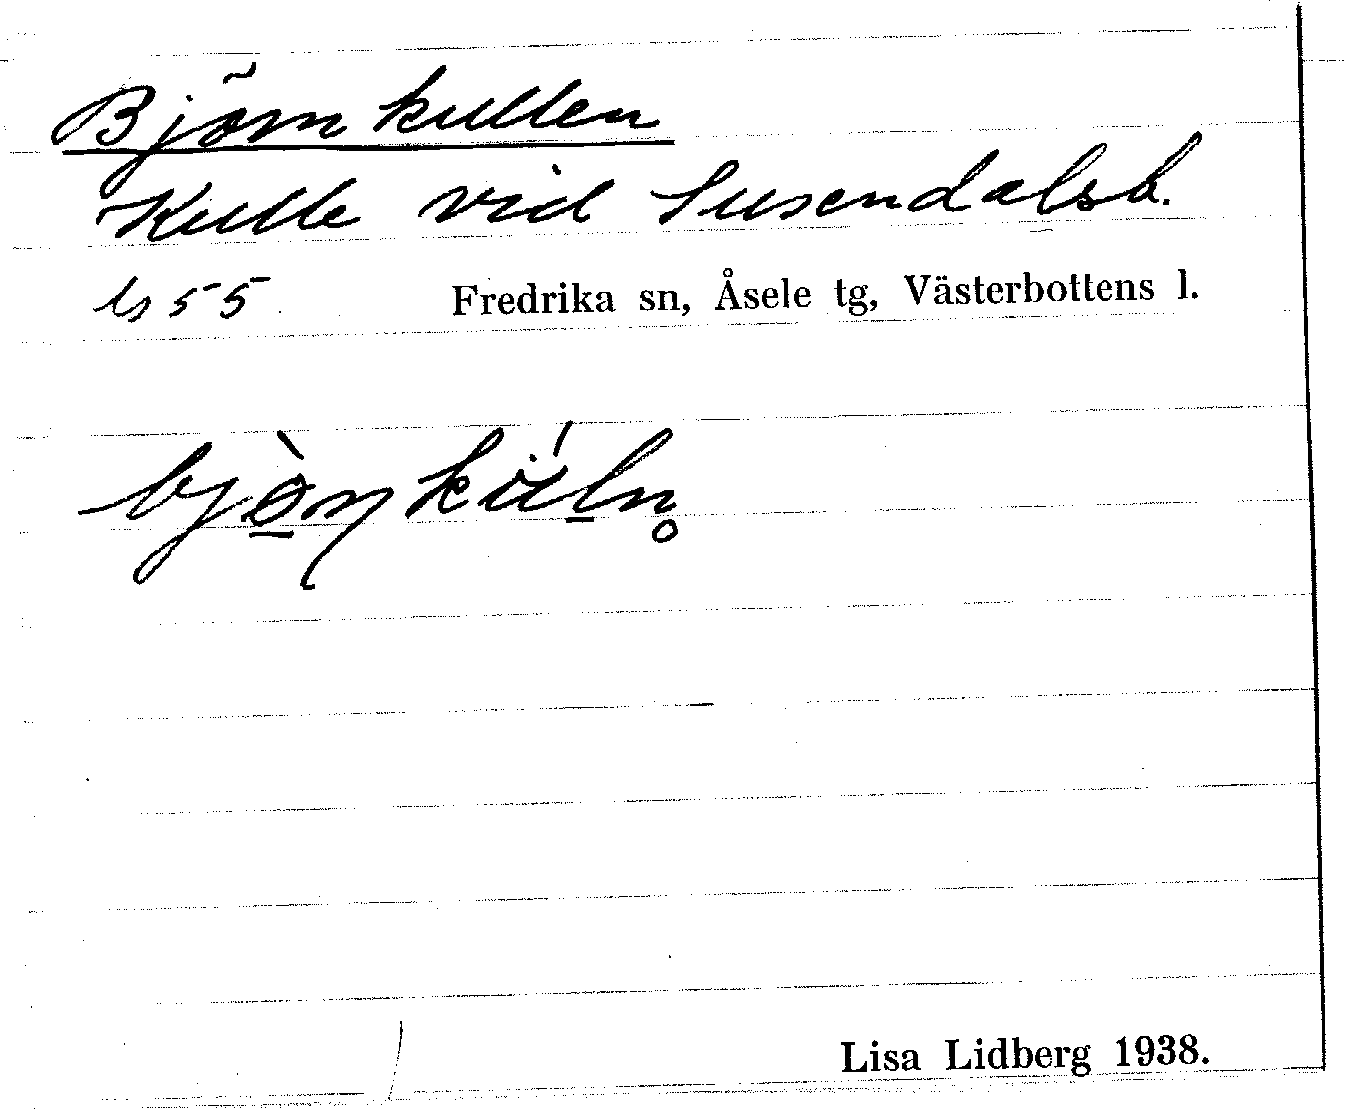 Björnkullen
Kulle vid Susendalsb.
ls 55 Fredrika sn, Åsele tg, Västerbottens l.
Lisa Lidberg 1938.